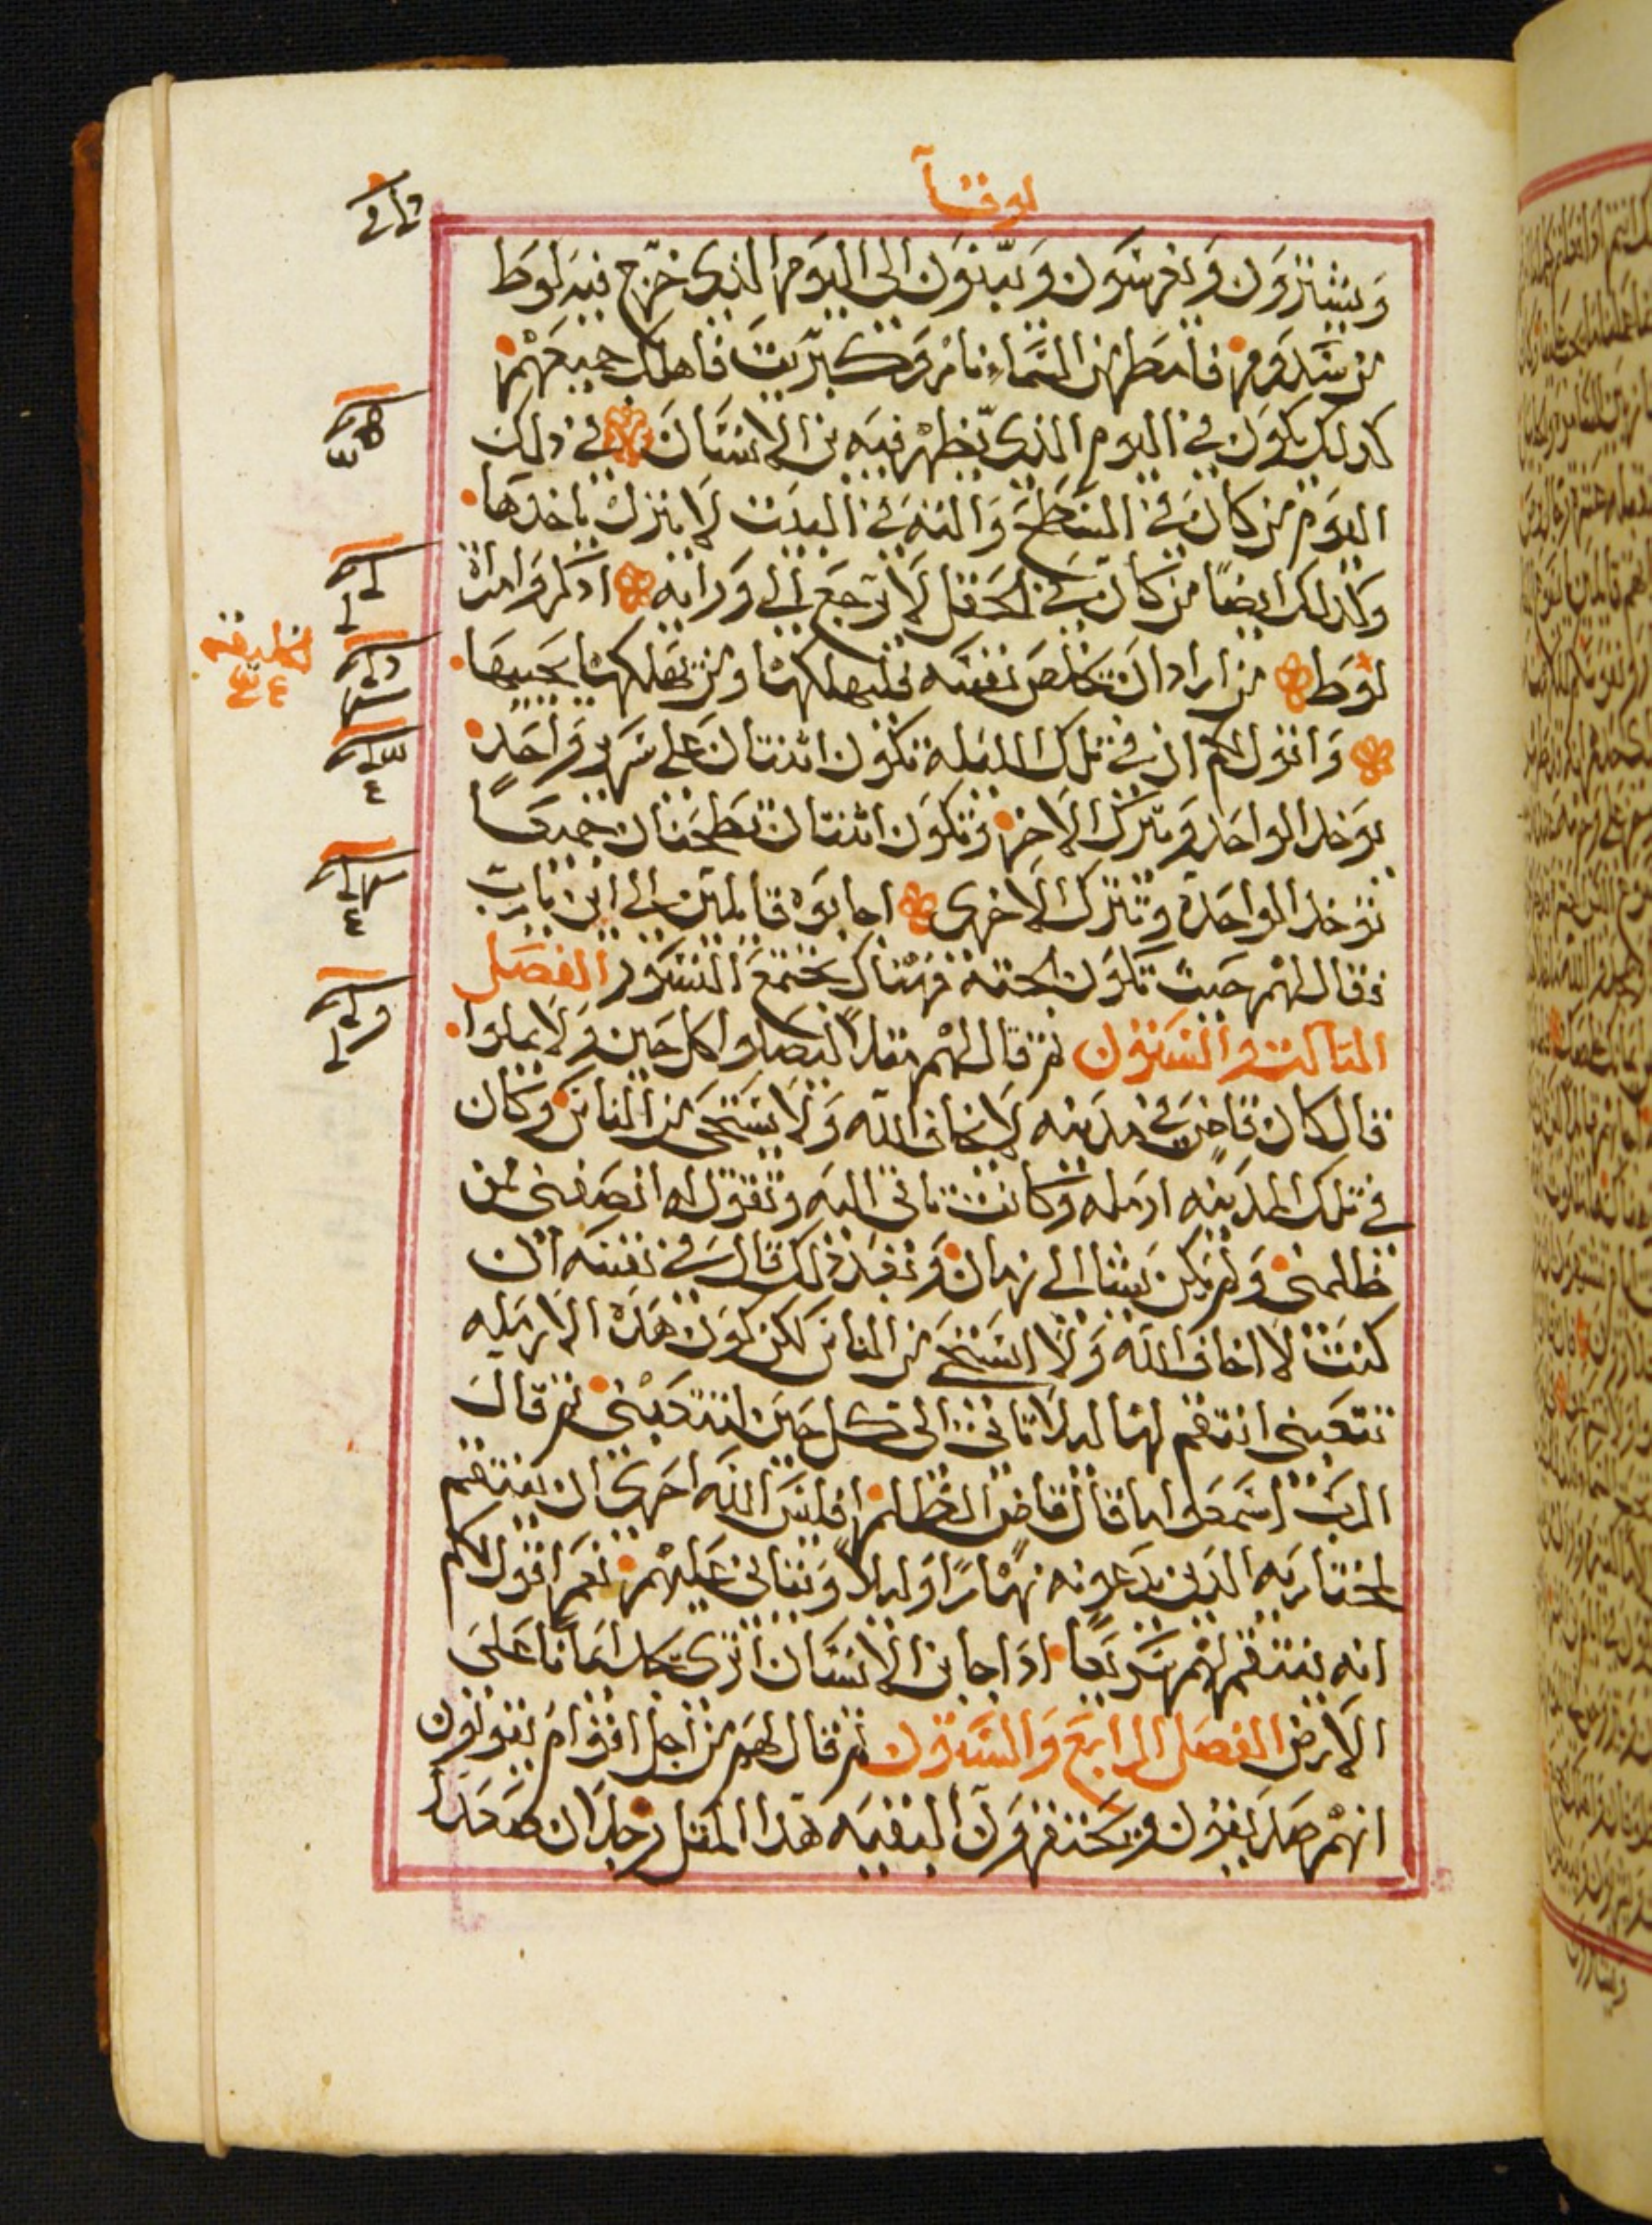 لوقا
ويشترون ويغرسون ويبنون الى اليوم الذى خرج فيه لوط
من سدوم فامطر من السماء نار وكبريت فاهلك جميعهم
كذلك يكون في اليوم الذى يظهر فيه بن الانسان في ذلك
اليوم من كان في السطح والته في البيت لا ينزل ياخدها
وكذلك ايضًا من كان في الحقل لا يرجع الى ورايه اذكروا امراة
لوط من اراد ان يخلص نفسه فليهلكها ومن يهلكها يحييها
واقول لكم ان في تلك الليله تكون اثنتان على سرير واحد
يوخد الواحد ويترك الاخر وتكون اثنتان تطحنان جميعًا
توخد الواحدة وتترك الاخرى اجابوه قايلين الى اين يارب
فقال لهم حيث تكون الجثه فهناك تجتمع النسور الفصل
الثالث والستون ثم قال لهم مثلاً ليصلوا كل حين ولا يملوا
قال كان قاضى في مدينه لا يخاف الله ولا يستحى من الناس وكان
في تلك المدينه ارمله وكانت تاتى اليه وتقول له انصفنى ممن
ظلمنى ولم يكن يشا الى زمان وبعد ذلك قال في نفسه ان
كنت لا اخاف الله ولا استحى من الناس لكن كون هذه الارمله
تتعبنى انتقم لها ليلا تاتى الى كل حين لتتعبنى ثم قال
الرب اسمعوا ما قال قاضى الظلم افليس الله احرى ان ينتقم
لمختاريه الذين يدعونه نهارًا وليلاً ويتانى عليهم نعم اقول لكم
انه ينتقم لهم سريعًا اذا جا بن الانسان اترى يجد ايمانا على
الارض الفصل الرابع والستون ثم قال لهم من اجل اقوام يقولون
انهم صديقون ويحتقرون البقيه هذا المثل رجلان صعدا